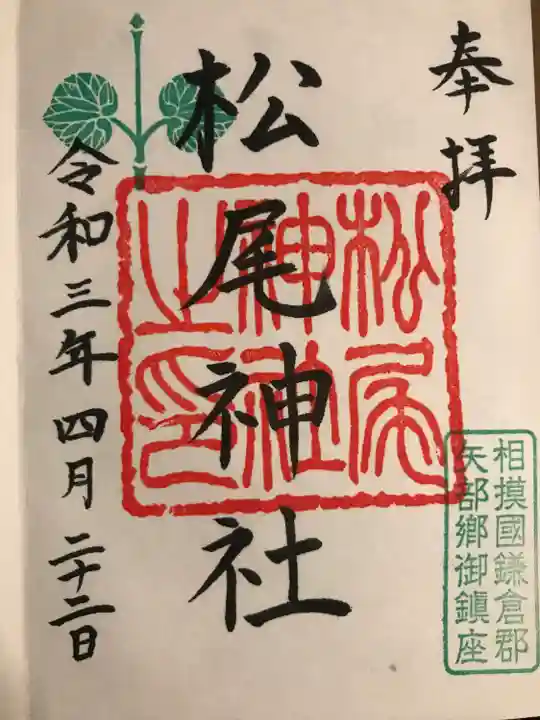 奉拝
松尾神社
松尾
神社
之印
令和三年四月二十二日
相摸國鎌倉郡
矢部郷御鎮座